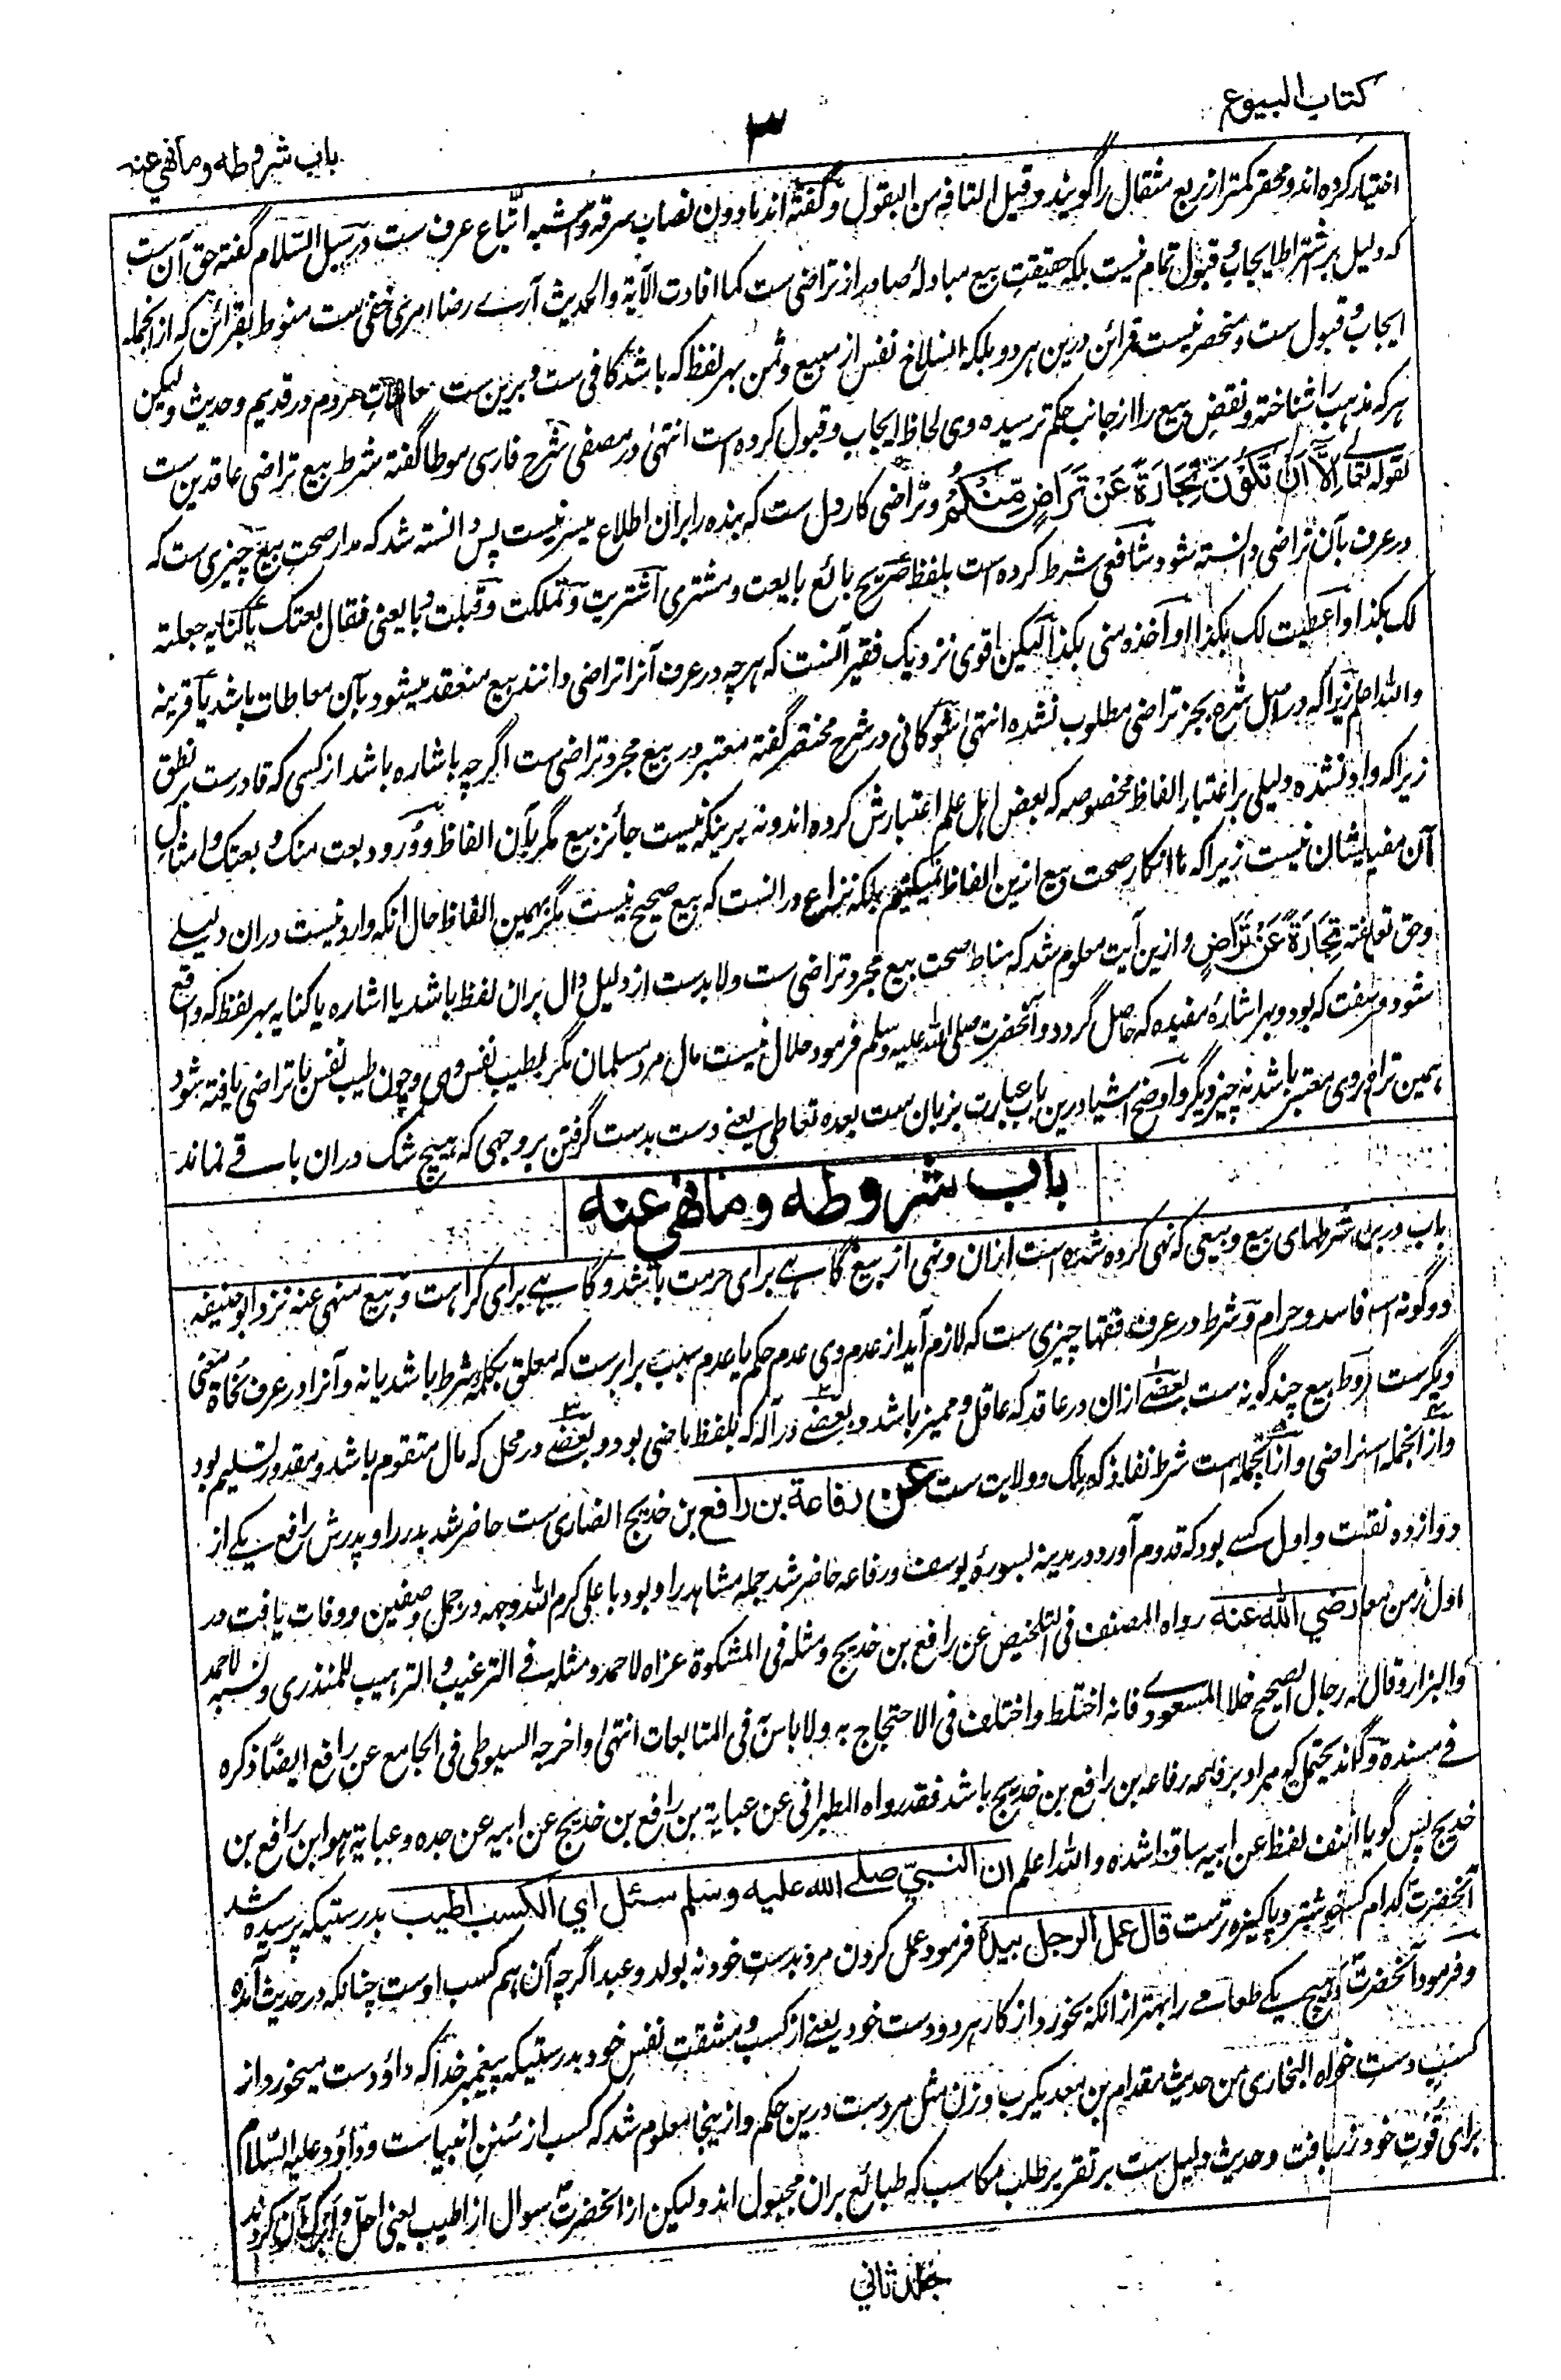 کتاب البیوع
۳
باب شروطه وما نهی عنه
اختیار کرده اند و محقر کمتر از ربع مثقال را گویند و قیل التافه من البقول و گفته اند مادون نصاب سرقه و اشبه اتباع عرف ست در سبل السلام گفته حق آن ست
که دلیل بر اشتراط ایجاب و قبول تمام نیست بلکه حقیقت بیع مبادلهٔ صادر از تراضی ست کما افادت الآیة والحدیث آرے رضا امری خفی ست منوط بقرائن که ازانجمله
ایجاب و قبول ست و منحصر نیست قرائن درین هر دو بلکه انسلاخ نفس از مبیع و ثمن بهر لفظ که باشد کافی ست و برین ست معاملات مردم در قدیم و حدیث ولیکن
هر که مذهب را شناخته و نقض بیع را از جانب حکم ترسیده وی لحاظ ایجاب و قبول کرده است انتهیٰ و در مصفی شرح فارسی موطا گفته شرط بیع تراضی عاقدین ست
لقوله تعالے اِلَّا اَنْ تَكُوْنَ تِجَارَةً عَنْ تَرَاضٍ مِّنْكُمْ و تراضی کار دل ست که بنده را بران اطلاع میسر نیست پس دانسته شد که مدار صحت بیع چیزی ست که
در عرف بآن تراضی دانسته شود و شافعی شرط کرده است بلفظ صریح بائع بایعت و مشتری اشتریت و تملکت و قبلت و بایعنی فقال بعتک یا کنایه جعلته
لک بکذا و اعطیت لک بکذا او آخذه منی بکذا لیکن اقوی نزدیک فقیر آنست که هر چه در عرف آنرا تراضی دانند بیع منعقد میشود بآن معاطات باشد یا قرینه
والله اعلم زیرا که در اصل شرع بجز تراضی مطلوب نشده انتهیٰ شوکانی در شرح مختصر گفته معتبر در بیع مجرد تراضی ست اگرچه باشاره باشد از کسی که قادر ست بر نطق
زیرا که وارد نشده دلیلی بر اعتبار الفاظ مخصوصه که بعض اهل علم اعتبارش کرده اند و نه برینکه نیست جائز بیع مگر بآن الفاظ و ورود بعت منک و بعتک و امثال
آن مفید ایشان نیست زیرا که ما انکار صحت بیع ازین الفاظ نمیکنیم بلکه نزاع در انست که بیع صحیح نیست مگر بهمین الفاظ حال انکه وارد نیست دران دلیلے
وحق تعالے گفته تِجَارَةً عَنْ تَرَاضٍ و ازین آیت معلوم شد که مناط صحت بیع مجرد تراضی ست ولا بد ست از دلیل دال بران لفظ باشد یا اشاره یا کنایه بهر لفظ که واقع
شود و هر صفت که بود و بهر اشارهٔ مفیده که حاصل گردد و آنحضرت صلی الله علیه وسلم فرمود حلال نیست مال مرد مسلمان مگر بطیب نفس وی و چون طیب نفس با تراضی یافته شود
همین تراضی معتبر باشد نه چیز دیگر و اوضح اشیا درین باب عبارت بزبان ست بعده تعاطی یعنے دست بدست گرفتن بر وجهی که هیچ شک دران باقے نماند
باب شروطه وما نهی عنه
باب در بیان شرطهای بیع و بیعی که نهی کرده شده است ازان و نهی از بیع گاهے برای حرمت باشد و گاهے برای کراهت و بیع منهی عنه نزد ابو حنیفه
دو گونه است فاسد و حرام و شرط در عرف فقها چیزی ست که لازم آید از عدم وی عدم حکم یا عدم سبب برابر ست که معلق بکلمهٔ شرط باشد یا نه و آنرا در عرف نحاة معنی
دیگر ست و شروط بیع چند گونه ست بعضے ازان در عاقد که عاقل و ممیز باشد و بعضے در آله که بلفظ ماضی بود و بعضے در محل که مال متقوم باشد و مقدور التسلیم بود
و ازانجمله است تراضی و ازانجمله است شرط نفاذ که ملک و ولایت ست عن رفاعة بن رافع بن خدیج انصاری ست حاضر شد بدر را و پدرش رافع یکے از
دوازده نقبت و اول کسے بود که قدوم آورد در مدینه بسورهٔ یوسف و رفاعه حاضر شد جمله مشاهد را و بود با علی کرم الله وجهه در جمل و صفین و وفات یافت در
اول زمن معاویه رضي الله عنه رواه المصنف فی التلخیص عن رافع بن خدیج و مثله فی المشکوة عزاه لاحمد و مثله فے الترغیب و الترهیب للمنذری و نسبه لاحمد
والبزار و قال له رجال الصحیح خلا المسعودے فانه اختلط و اختلف فی الاحتجاج به ولا باس فی المتابعات انتهیٰ و اخرجه السیوطی فی الجامع عن رافع ایضًا ذکره
فے مسنده و گفته اند یحتمل که مراد برفاعه رفاعه بن رافع بن خدیج باشد فقد رواه الطبرانی عن عبایة بن رافع بن خدیج عن ابیه عن جده و عبایة هو ابن رافع بن
خدیج پس گویا از مصنف لفظ عن ابیه ساقط شده والله اعلم ان النبيّ صلے الله علیه وسلم سئل اي الكسب اطیب بدرستیکه پرسیده شد
آنحضرت کدام کسب خوشتر و پاکیزه تر ست قال عمل الرجل بیده فرمود عمل کردن مرد بدست خود نه بولد و عبد اگرچه آن هم کسب اوست چنانکه در حدیث آمده
و فرمود آنحضرت نخورد هیچ یکے طعامے را بهتر از انکه بخورد از کار هر دو دست خود یعنے از کسب و مشقت نفس خود بدرستیکه پیغمبر خدا که داؤد ست میخورد از
کسب دست خود رواه البخاری من حدیث مقدام بن معدیکرب و زن مثل مرد ست درین حکم و ازینجا معلوم شد که کسب از سُنن انبیاست و داؤد علیه السلام
برای قُوت خود زره بافت و حدیث دلیل ست بر تقریر طلب مکاسب که طبائع بران مجبول اند ولیکن از انحضرت سوال از اطیب یعنی احل و ابرک آن کردند
جلد ثاني